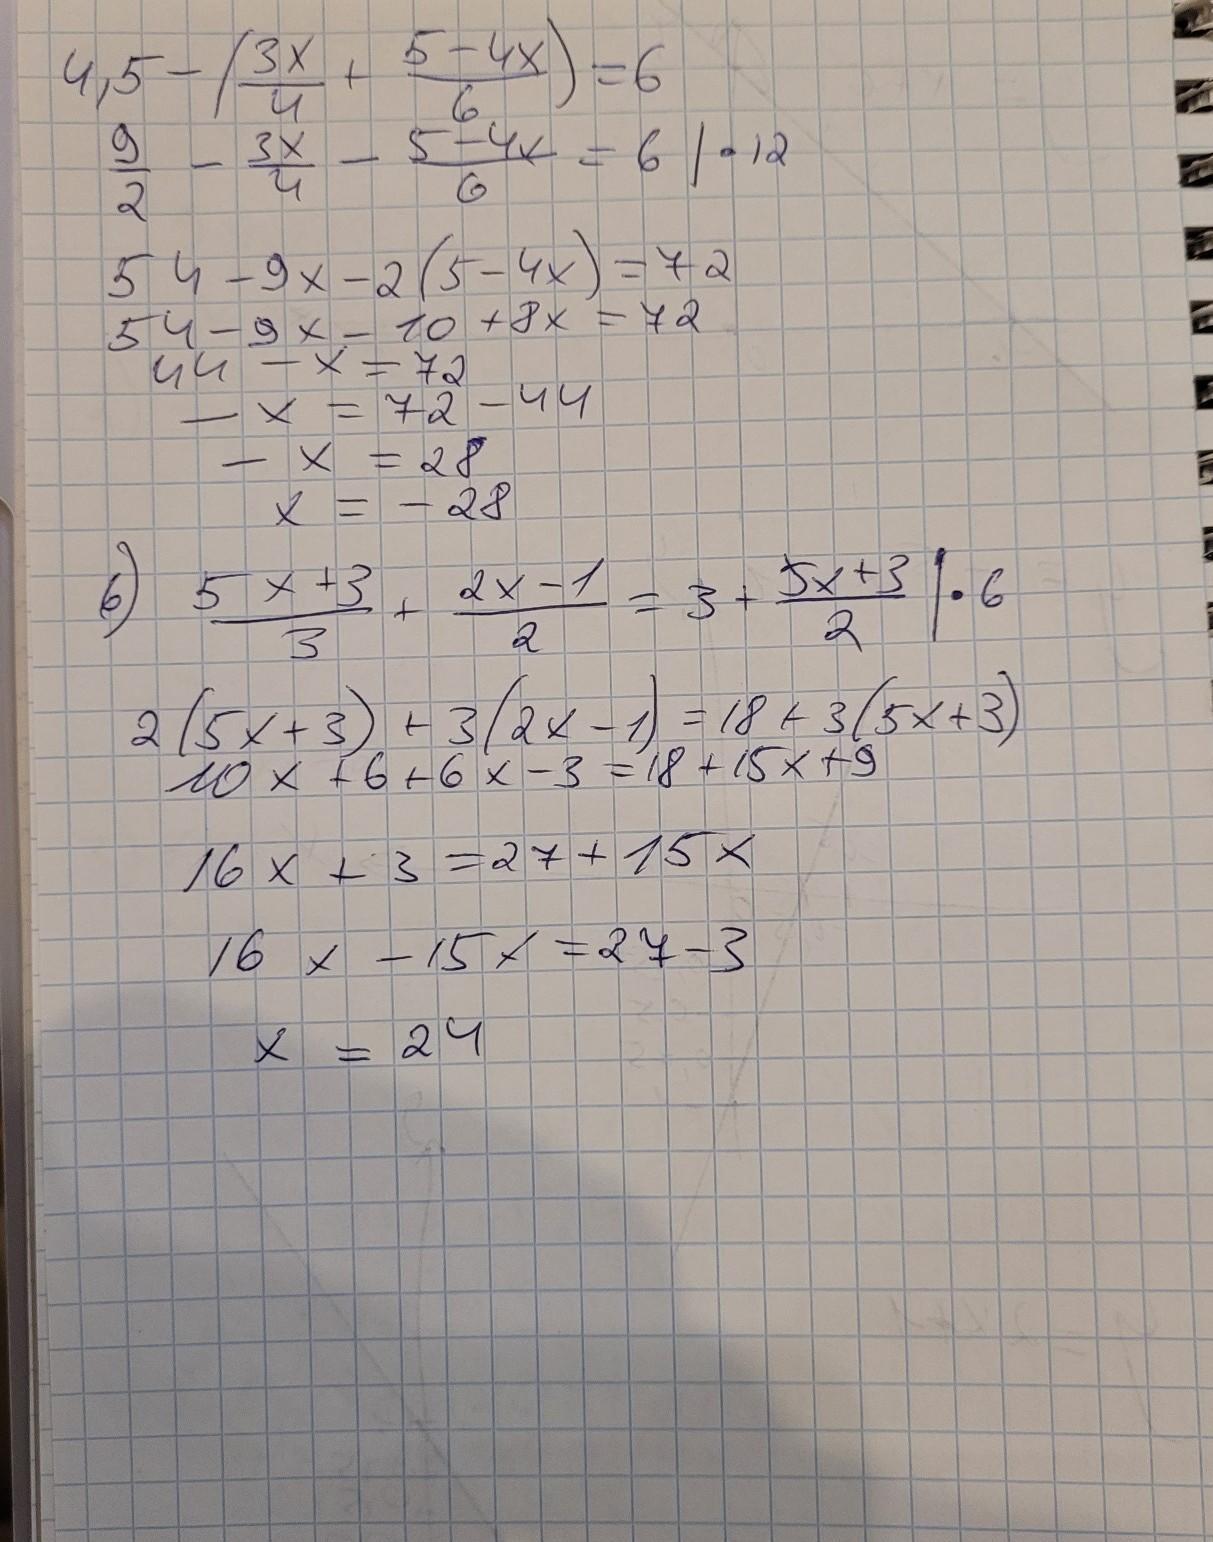 4,5 - (3x/4 + (5-4x)/6) = 6
9/2 - 3x/4 - (5-4x)/6 = 6 | • 12
54 - 9x - 2(5-4x) = 72
54 - 9x - 10 + 8x = 72
44 - x = 72
- x = 72 - 44
- x = 28
x = - 28
б) (5x+3)/3 + (2x-1)/2 = 3 + (5x+3)/2 | • 6
2(5x+3) + 3(2x-1) = 18 + 3(5x+3)
10x + 6 + 6x - 3 = 18 + 15x + 9
16x + 3 = 27 + 15x
16x - 15x = 27 - 3
x = 24